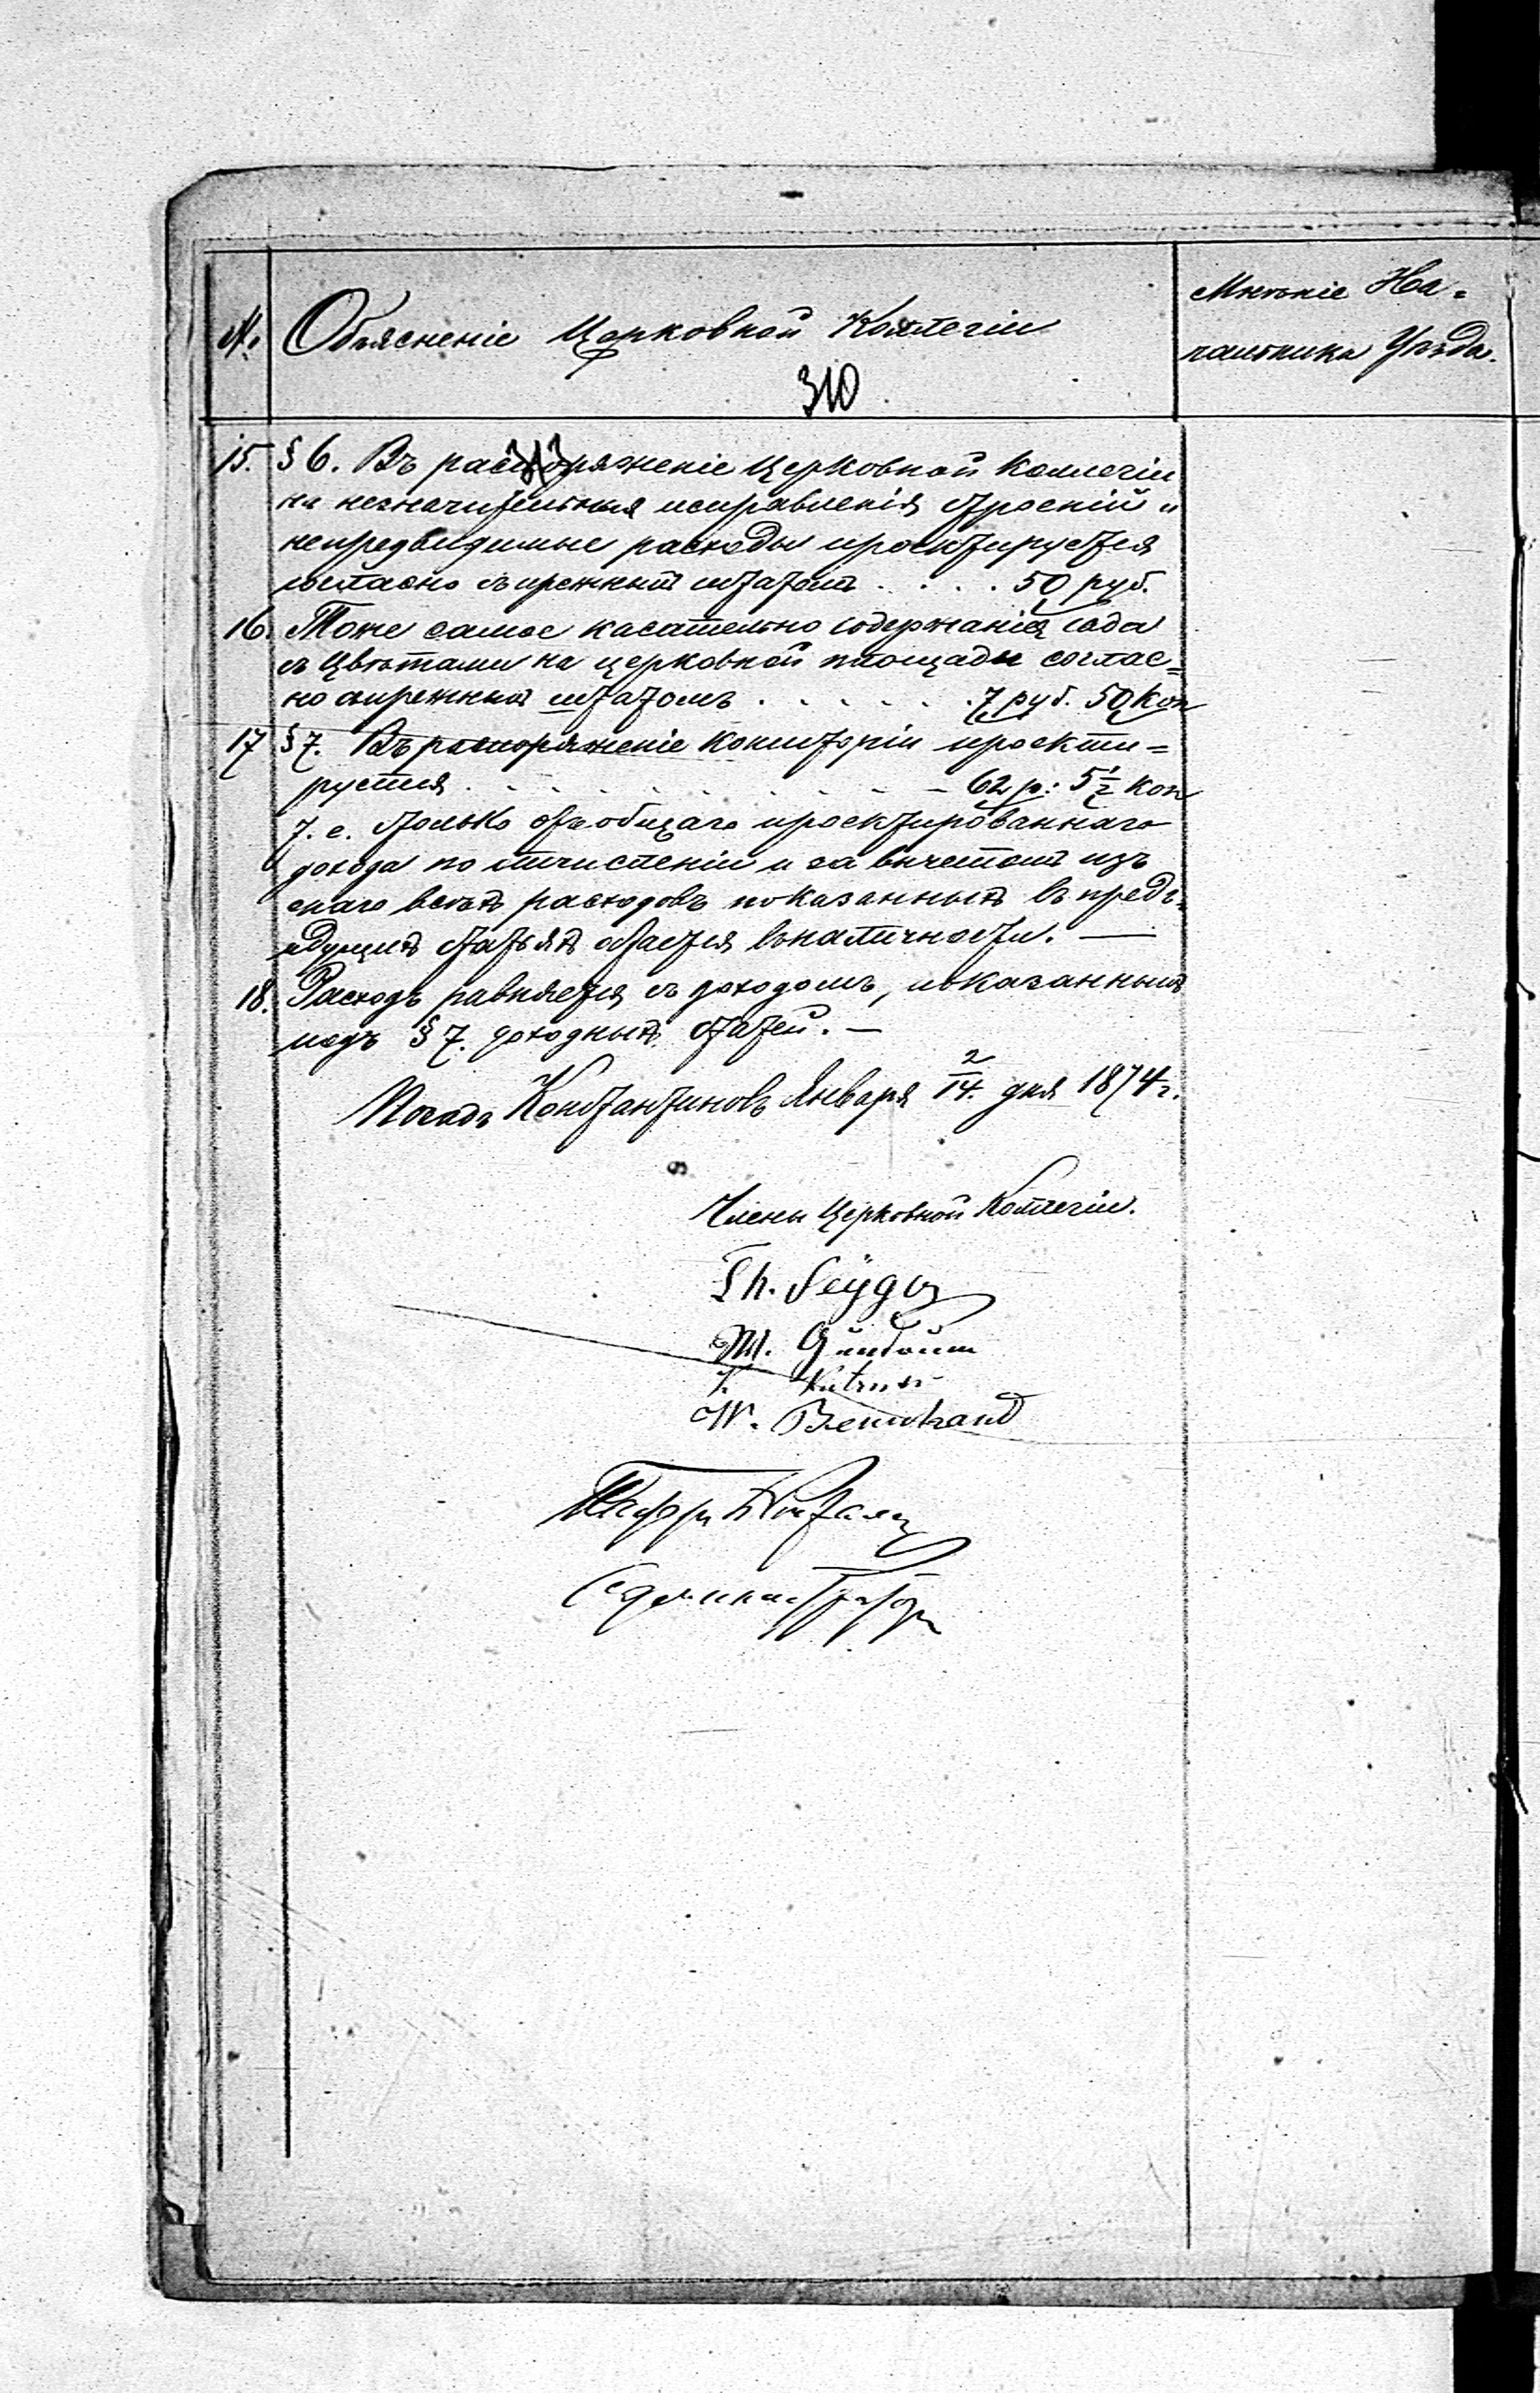 № Объясненіе Церковной Коллегіи
Мнѣніе На=
чальника Уѣзда.
310
15. § 6. Въ распоряженіе Церковной Коллегіи
на незначительныя исправленія строеній и
непредвидимые расходы проектируется
согласно съ прежнимъ штатомъ . . . . 50 руб.
16. Тоже самое касательно содержанія сада
съ цвѣтами на церковной площади соглас=
но съ прежнимъ штатомъ . . . . . . 7 руб. 50 коп
17 § 7. Въ распоряженіе Консисторіи проекти=
руется . . . . . . . . . . 62 р: 5 1/2 коп
т. е. столько отъ общаго проектированнаго
дохода по отчисленіи и за вычетомъ изъ
онаго всѣхъ расходовъ показанныхъ въ предъ=
идущихъ статьяхъ остается въ наличности. —
18. Расходъ равняется съ доходомъ, показаннымъ
подъ § 7. доходныхъ статей. —
Посадъ Константиновъ Января 2/14. дня 1874 г.
Члены Церковной Коллегіи.
Th.
M.
W.